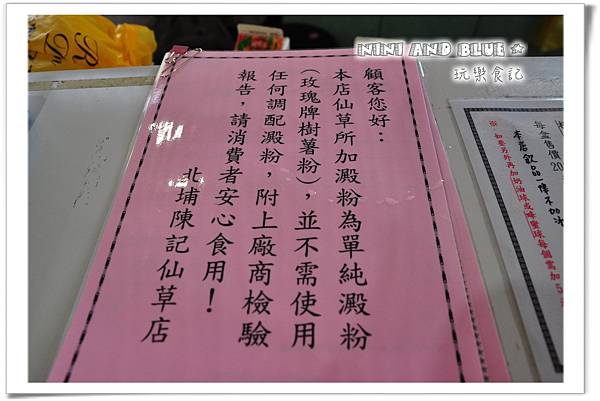 NINI AND BLUE
玩樂食記
顧客您好：
本店仙草所加澱粉為單純澱粉
（玫瑰牌樹薯粉），並不需使用
任何調配澱粉，附上廠商檢驗
報告，請消費者安心食用！
北埔陳記仙草店
每盒售價20
本店飲品一律不加冰
※如要另外再加奶油球或蜂蜜球每個需加5